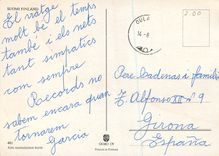 SUOMI FINLAND
El viatge
molt bé el temps
també i els nets
tant simpatics
com sempre
Records no
sabem encara quan
tornarem
Garcia
OULU
14-8
2.00
Cadenas i familia
C/ Alfonso XII nº 9
Girona
España